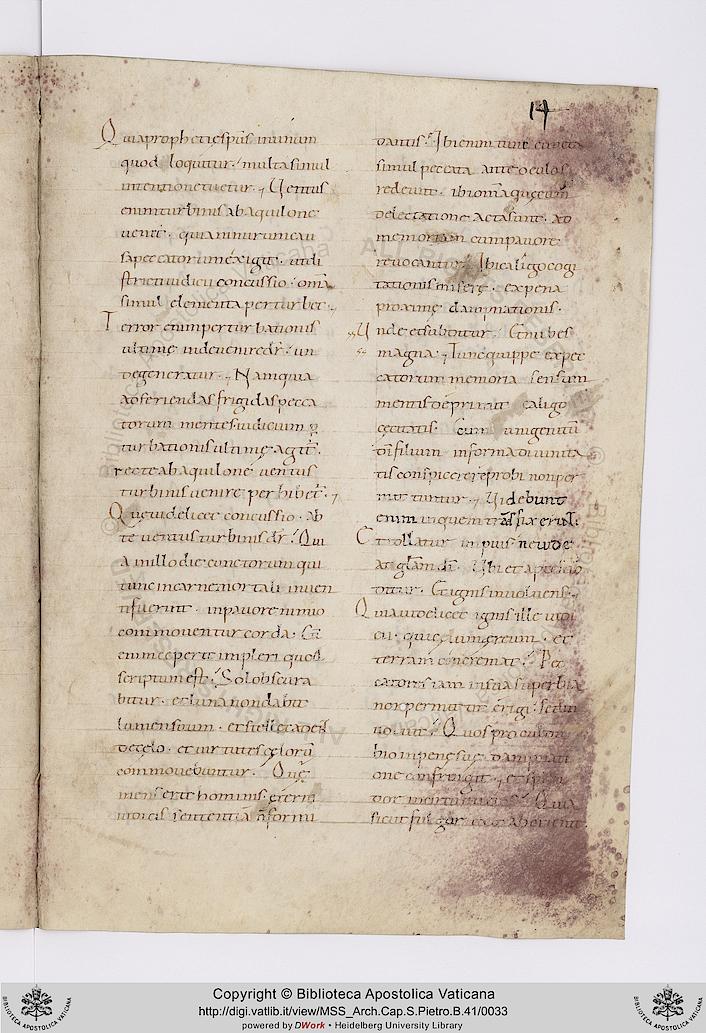 14
Quia prophetię sp̄s in unum
quod loquitur. multa simul
intentione tuetur. Uentus
enim turbinis ab aquilone
uenit. quia
sa peccatorum exigit. ut di
stricti iudicii concussio. om̄a
simul elementa perturbet.
Terror enim perturbationis
ultimę inde uenire dr̄. un
de generatur. Nam quia
ad feriendas frigidas pecca
torum mentes iudicium
turbationis ultimę agit̄.
recte ab aquilone uentus
turbinis uenire perhibet̄.
Quę uidelicet concussio. ab
te uentus turbinis dr̄. Qui
a in illo die cunctorum qui
tunc in carne mortali inuen
ti fuerint. in pauore nimio
commouentur corda. Et
enim aperte impleri quod
scriptum est. Sol obscura
bitur. et luna non dabit
lumen suum. et stellę cadent
de cęlo. et uirtutes cęlorū
commouebuntur. Quę
mens ergo hominis
iudicis sententiā
dantis. Ibi enim tunc cuncta
simul peccata ante oculos
redeunt. ibi om̄a quę cum
delectatione acta sunt. ad
memoriam cum pauore
reuocantur. Ibi caligo cogi
tationis miserę. ex pena
proximę damnationis.
Unde et subditur. Et nubes
magna. Tunc quippe ex pec
catorum memoria sensum
mentis deprimit caligo
cęcitatis. cum unigenitū
dī filium in forma diuinita
tis conspicere reprobi non per
mittuntur. Uidebunt
enim in quem
Et tollatur impius ne uideat
at glām dī. Ubi et apte
ditur. Et ignis inuoluens.
Quia uidelicet ignis ille iudi
cii. et
terram concremat. Pec
catores iam in sua superbia
non permittit erigi.
uoluit. Quos pro culpa
damnati
one constringit. et splen
dor in circuitu eius. Quia
sicut fulgor
Copyright © Biblioteca Apostolica Vaticana
http://digi.vatlib.it/view/MSS_Arch.Cap.S.Pietro.B.41/0033
powered by DWork • Heidelberg University Library